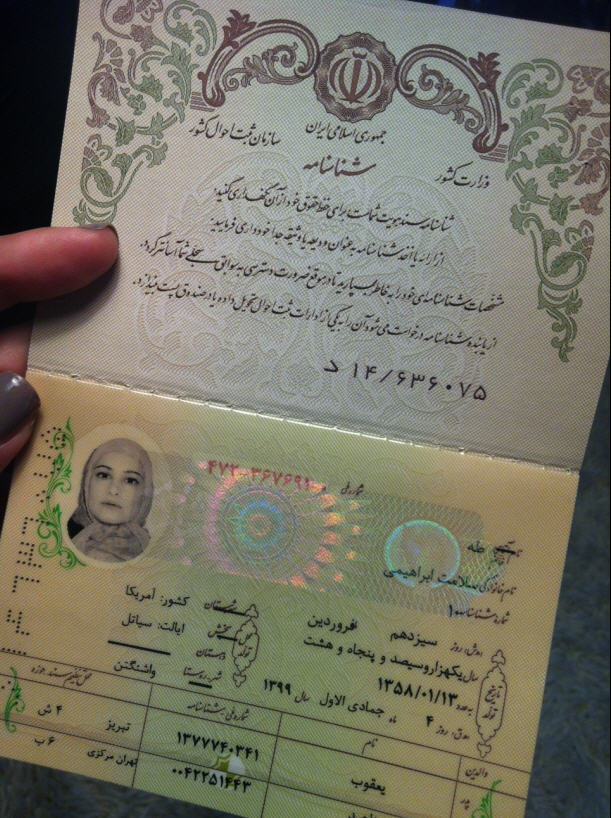 جمهوری اسلامی ایران
وزارت کشور
سازمان ثبت احوال کشور
شناسنامه
شناسنامه سند هویت شماست برای حفظ حقوق خود از آن نگهداری کنید.
از ارائه یا اخذ شناسنامه به عنوان ودیعه یا وثیقه جدا خودداری فرمایید.
مشخصات شناسنامه‌ای خود را به خاطر بسپارید تا در موقع ضرورت دسترسی به سوابق سجلی شما آسانتر گردد.
از یابنده شناسنامه درخواست می‌شود آن را به یکی از ادارات ثبت احوال تحویل داده یا در صندوق پست بیندازد.
د ۱۴/۶۳۶۰۷۵
شماره ملی
طه
نام خانوادگی: سلامت ابراهیمی
شماره شناسنامه: ۱۰
تاریخ تولد
ه‍.ش: روز سیزدهم فروردین
سال یکهزاروسیصد و پنجاه و هشت
به عدد ۱۳۵۸/۰۱/۱۳
ه‍.ق: روز ۴ ماه جمادی الاول سال ۱۳۹۹
محل تولد
کشور: آمریکا
ایالت: سیاتل
دهستان
واشنگتن
والدین نام شماره ملی/شناسنامه محل تنظیم سند/حوزه
پدر یعقوب ۱۳۷۷۷۴۰۳۴۱ تبریز ۴ ش
۰۰۴۲۲۵۱۴۴۳ تهران مرکزی ۶ ب